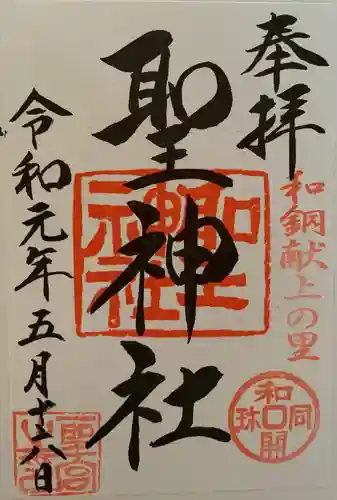 奉拝
和銅献上の里
聖神社
令和元年五月十六日
和同開珎